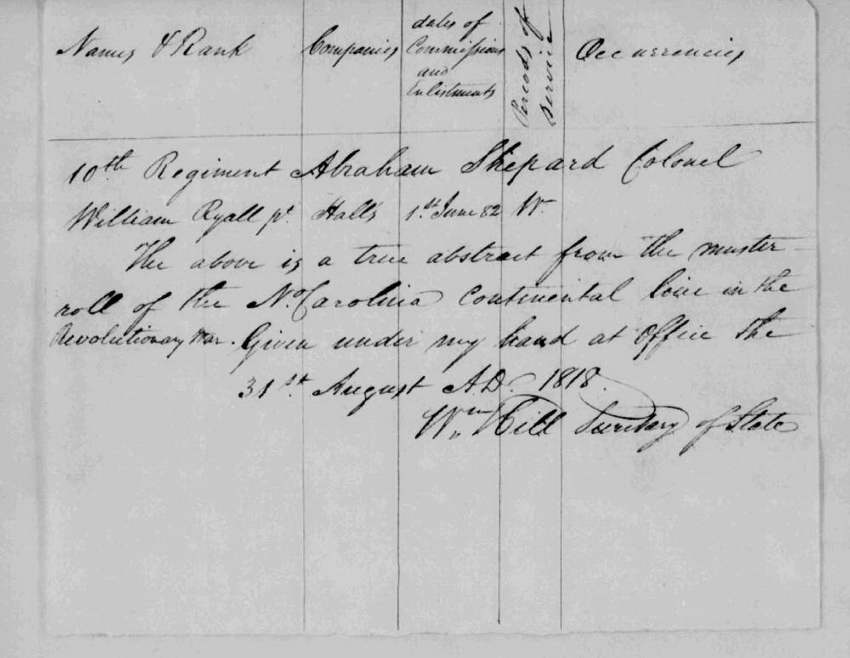 Names & Rank
Companies
dates of
Commissions
and
Enlistments
Periods of
Service
Occurrencies
10th Regiment Abraham Shepard Colonel
William Ryall pt. Halls 1st. June 82 W.
The above is a true abstract from the muster
roll of the No. Carolina Continental line in the
Revolutionary War. Given under my hand at Office the
31st. August A.D. 1818.
Wm. Hill Secretary of State